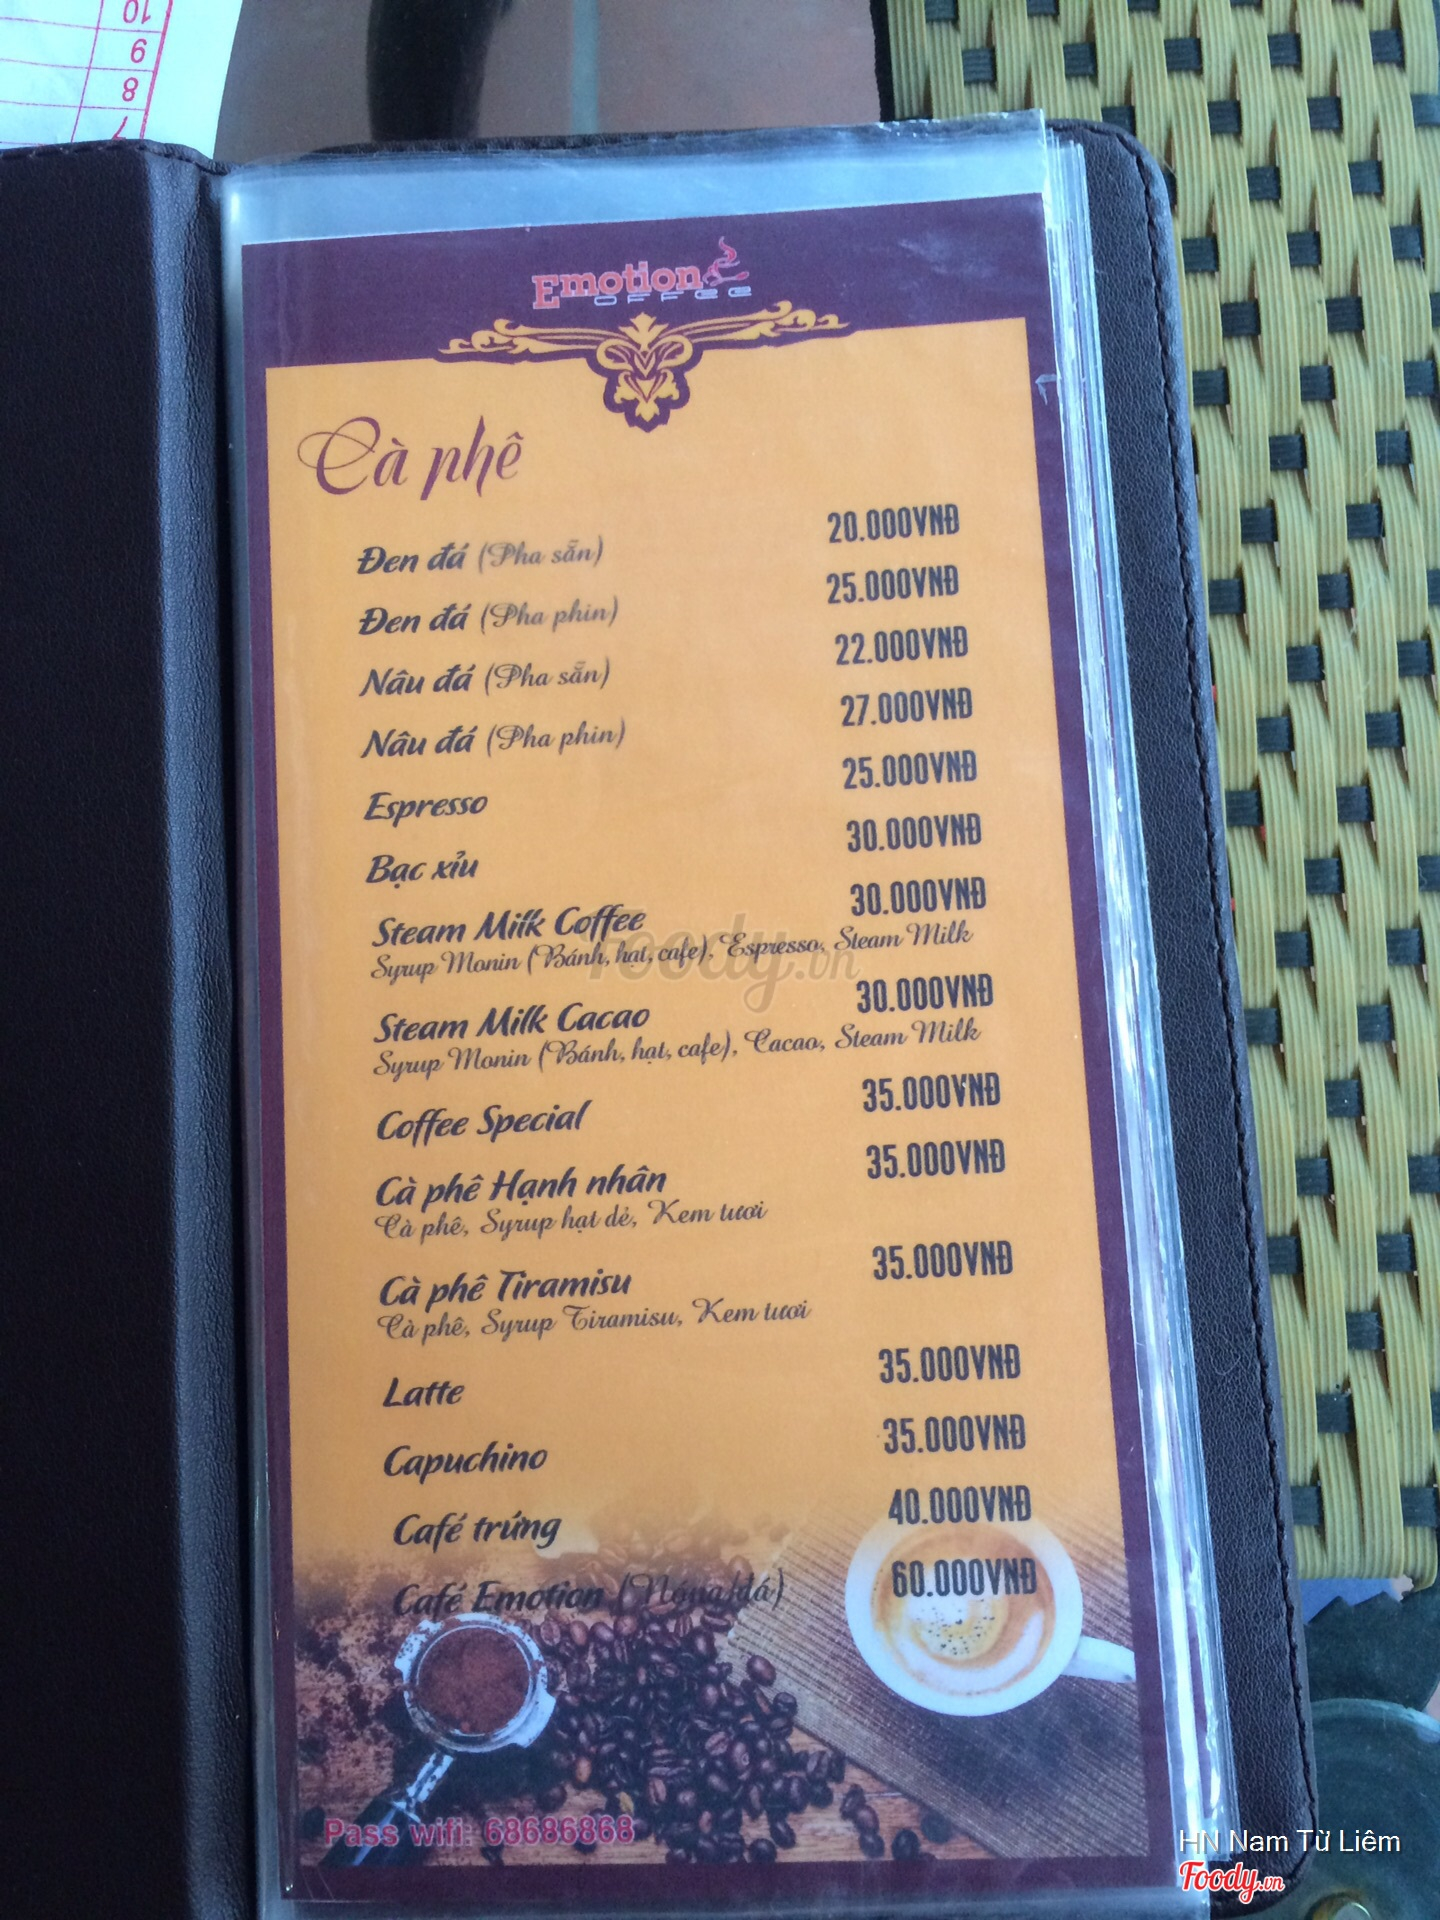 10
9
8
7
Emotion
COFFEE
Cà phê
Đen đá (Pha sẵn) 20.000VNĐ
Đen đá (Pha phin) 25.000VNĐ
Nâu đá (Pha sẵn) 22.000VNĐ
Nâu đá (Pha phin) 27.000VNĐ
Espresso 25.000VNĐ
Bạc xỉu 30.000VNĐ
Steam Milk Coffee 30.000VNĐ
Syrup Monin (Bánh, hạt, cafe), Espresso, Steam Milk
Steam Milk Cacao 30.000VNĐ
Syrup Monin (Bánh, hạt, cafe), Cacao, Steam Milk
Coffee Special 35.000VNĐ
Cà phê Hạnh nhân 35.000VNĐ
Cà phê, Syrup hạt dẻ, Kem tươi
Cà phê Tiramisu 35.000VNĐ
Cà phê, Syrup Tiramisu, Kem tươi
Latte 35.000VNĐ
Capuchino 35.000VNĐ
Café trứng 40.000VNĐ
Café Emotion (Nóng/đá) 60.000VNĐ
Pass wifi: 68686868
Foody.vn
HN Nam Từ Liêm
Foody.vn